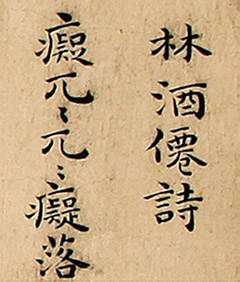 林酒僊詩
癡兀〻兀〻癡落